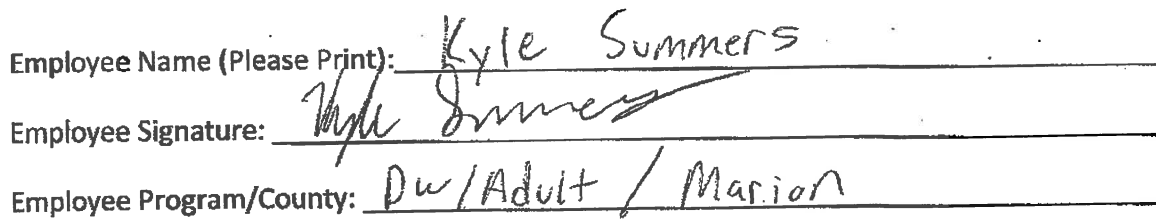 Employee Name (Please Print): Kyle Summers
Employee Signature: Kyle Summers
Employee Program/County: DW/Adult / Marion